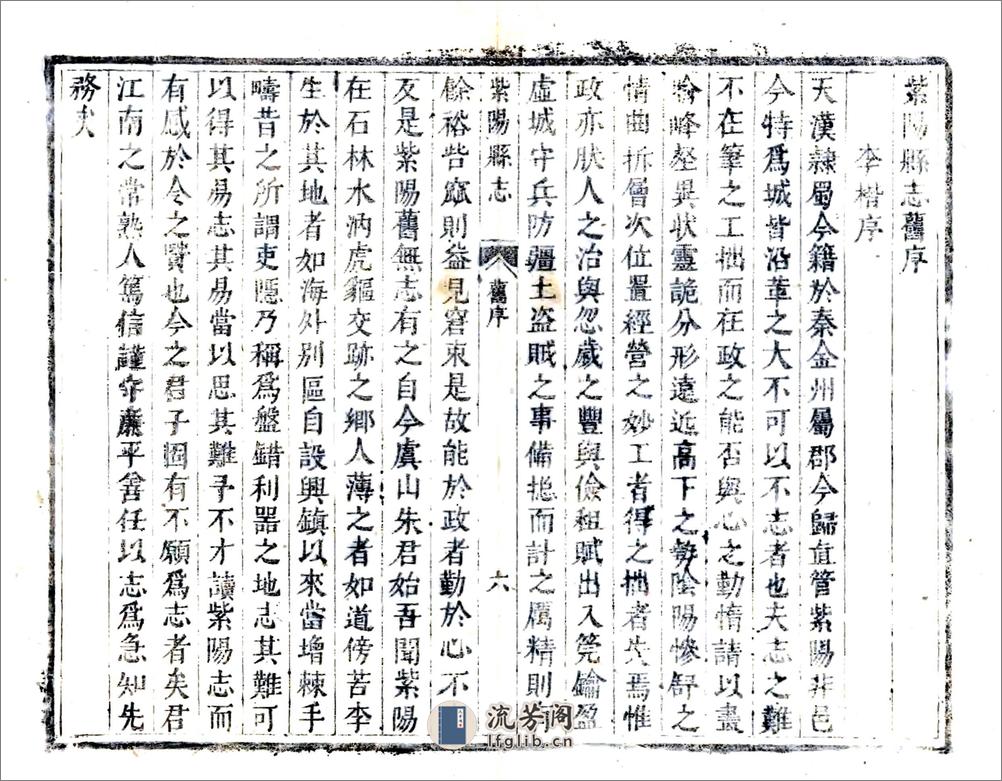 紫陽縣志舊序
李楷序
天漢隷蜀今籍於秦金州屬郡今歸直管紫陽非邑
今特爲城皆沿革之大不可以不志者也夫志之難
不在筆之工拙而在政之能否與心之勤惰請以畫
峰壑異狀靈詭分形遠近高下之勢陰陽慘舒之
情曲折層次位置經營之妙工者得之拙者失焉惟
政亦肰人之治與忽歲之豐與儉租賦出入筦鑰盈
虛城守兵防疆土盗賊之事備揔而計之厲精則
餘裕呰窳則益見窘束是故能於政者勤於心不
及是紫陽舊無志有之自今虞山朱君始吾聞紫陽
在石林水洒虎貙交跡之鄉人薄之者如道傍苦李
生於其地者如海外別區自設興鎮以來當增棘手
疇昔之所謂吏隱乃稱爲盤錯利器之地志其難可
以得其易志其易當以思其難予不才讀紫陽志而
有感於令之賢也今之君子固有不願爲志者矣君
江南之常熟人篤信謹守廉平善任以志爲急知先
務夫
紫陽縣志
舊序
六
流芳阁
lfglib.cn